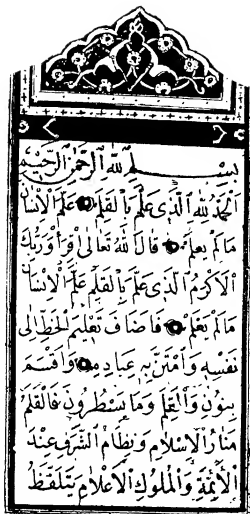 بِسْمِ اللهِ الرَّحْمٰنِ الرَّحِيْمِ
اَلْحَمْدُ لِلّٰهِ الَّذِى عَلَّمَ بِالْقَلَمِ عَلَّمَ الْاِنْسَانَ
مَالَمْ يَعْلَمْ قَالَ اللهُ تَعَالٰى اِقْرَأْ وَرَبُّكَ
الْاَكْرَمُ الَّذِى عَلَّمَ بِالْقَلَمِ عَلَّمَ الْاِنْسَانَ
مَالَمْ يَعْلَمْ فَاَضَافَ تَعْلِيْمَ الْخَطِّ اِلٰى
نَفْسِهِ وَامْتَنَّ بِهِ عِبَادِهِ وَاَقْسَمَ
بِنُوْنٍ وَالْقَلَمِ وَمَا يَسْطُرُوْنَ فَالْقَلَمُ
مَنَارُ الْاِسْلَامِ وَنِظَامُ الشَّرَفِ عِنْدَ
الْاَئِمَّةِ وَالْمُلُوْكِ الْاَعْلَامِ يَتَلَفَّظُ